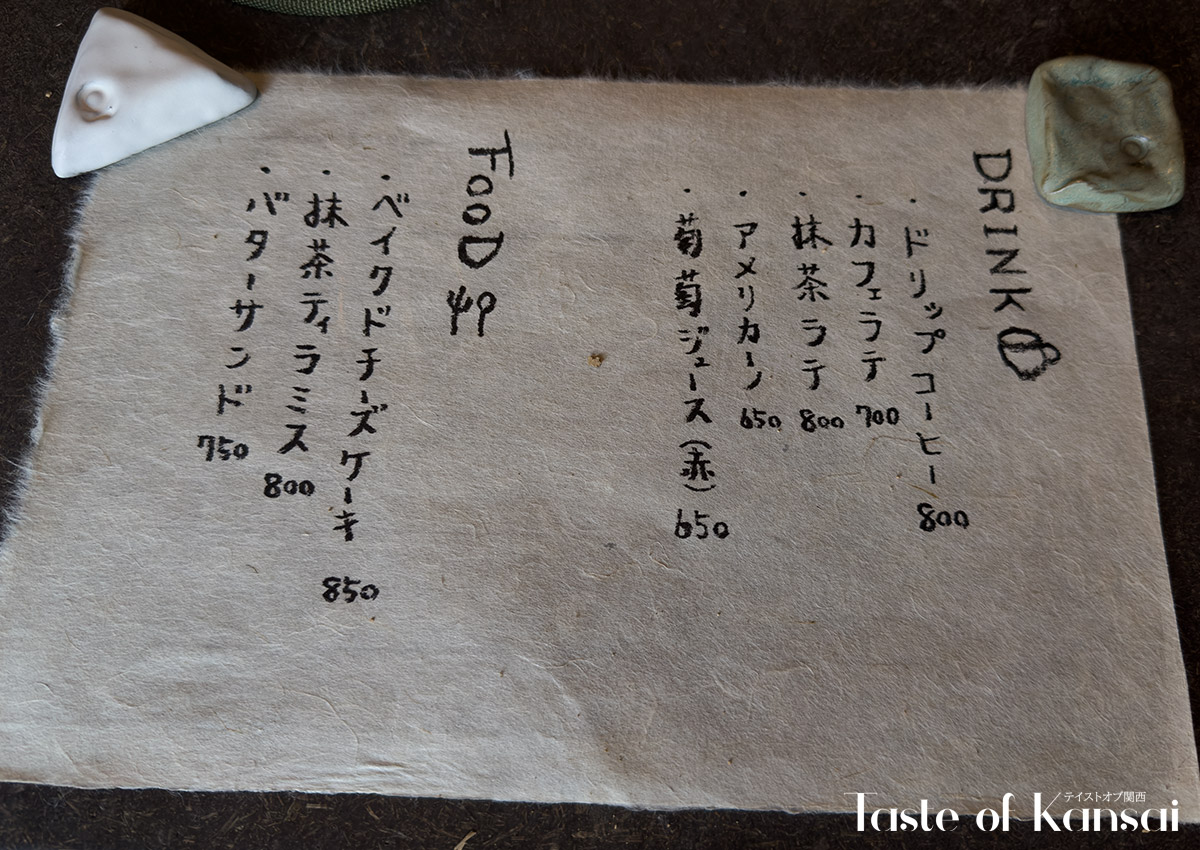 DRINK
・ドリップコーヒー 800
・カフェラテ 700
・抹茶ラテ 800
・アメリカーノ 650
・葡萄ジュース(赤) 650
FooD
・ベイクドチーズケーキ 850
・抹茶ティラミス 800
・バターサンド 750
テイストオブ関西
Taste of Kansai